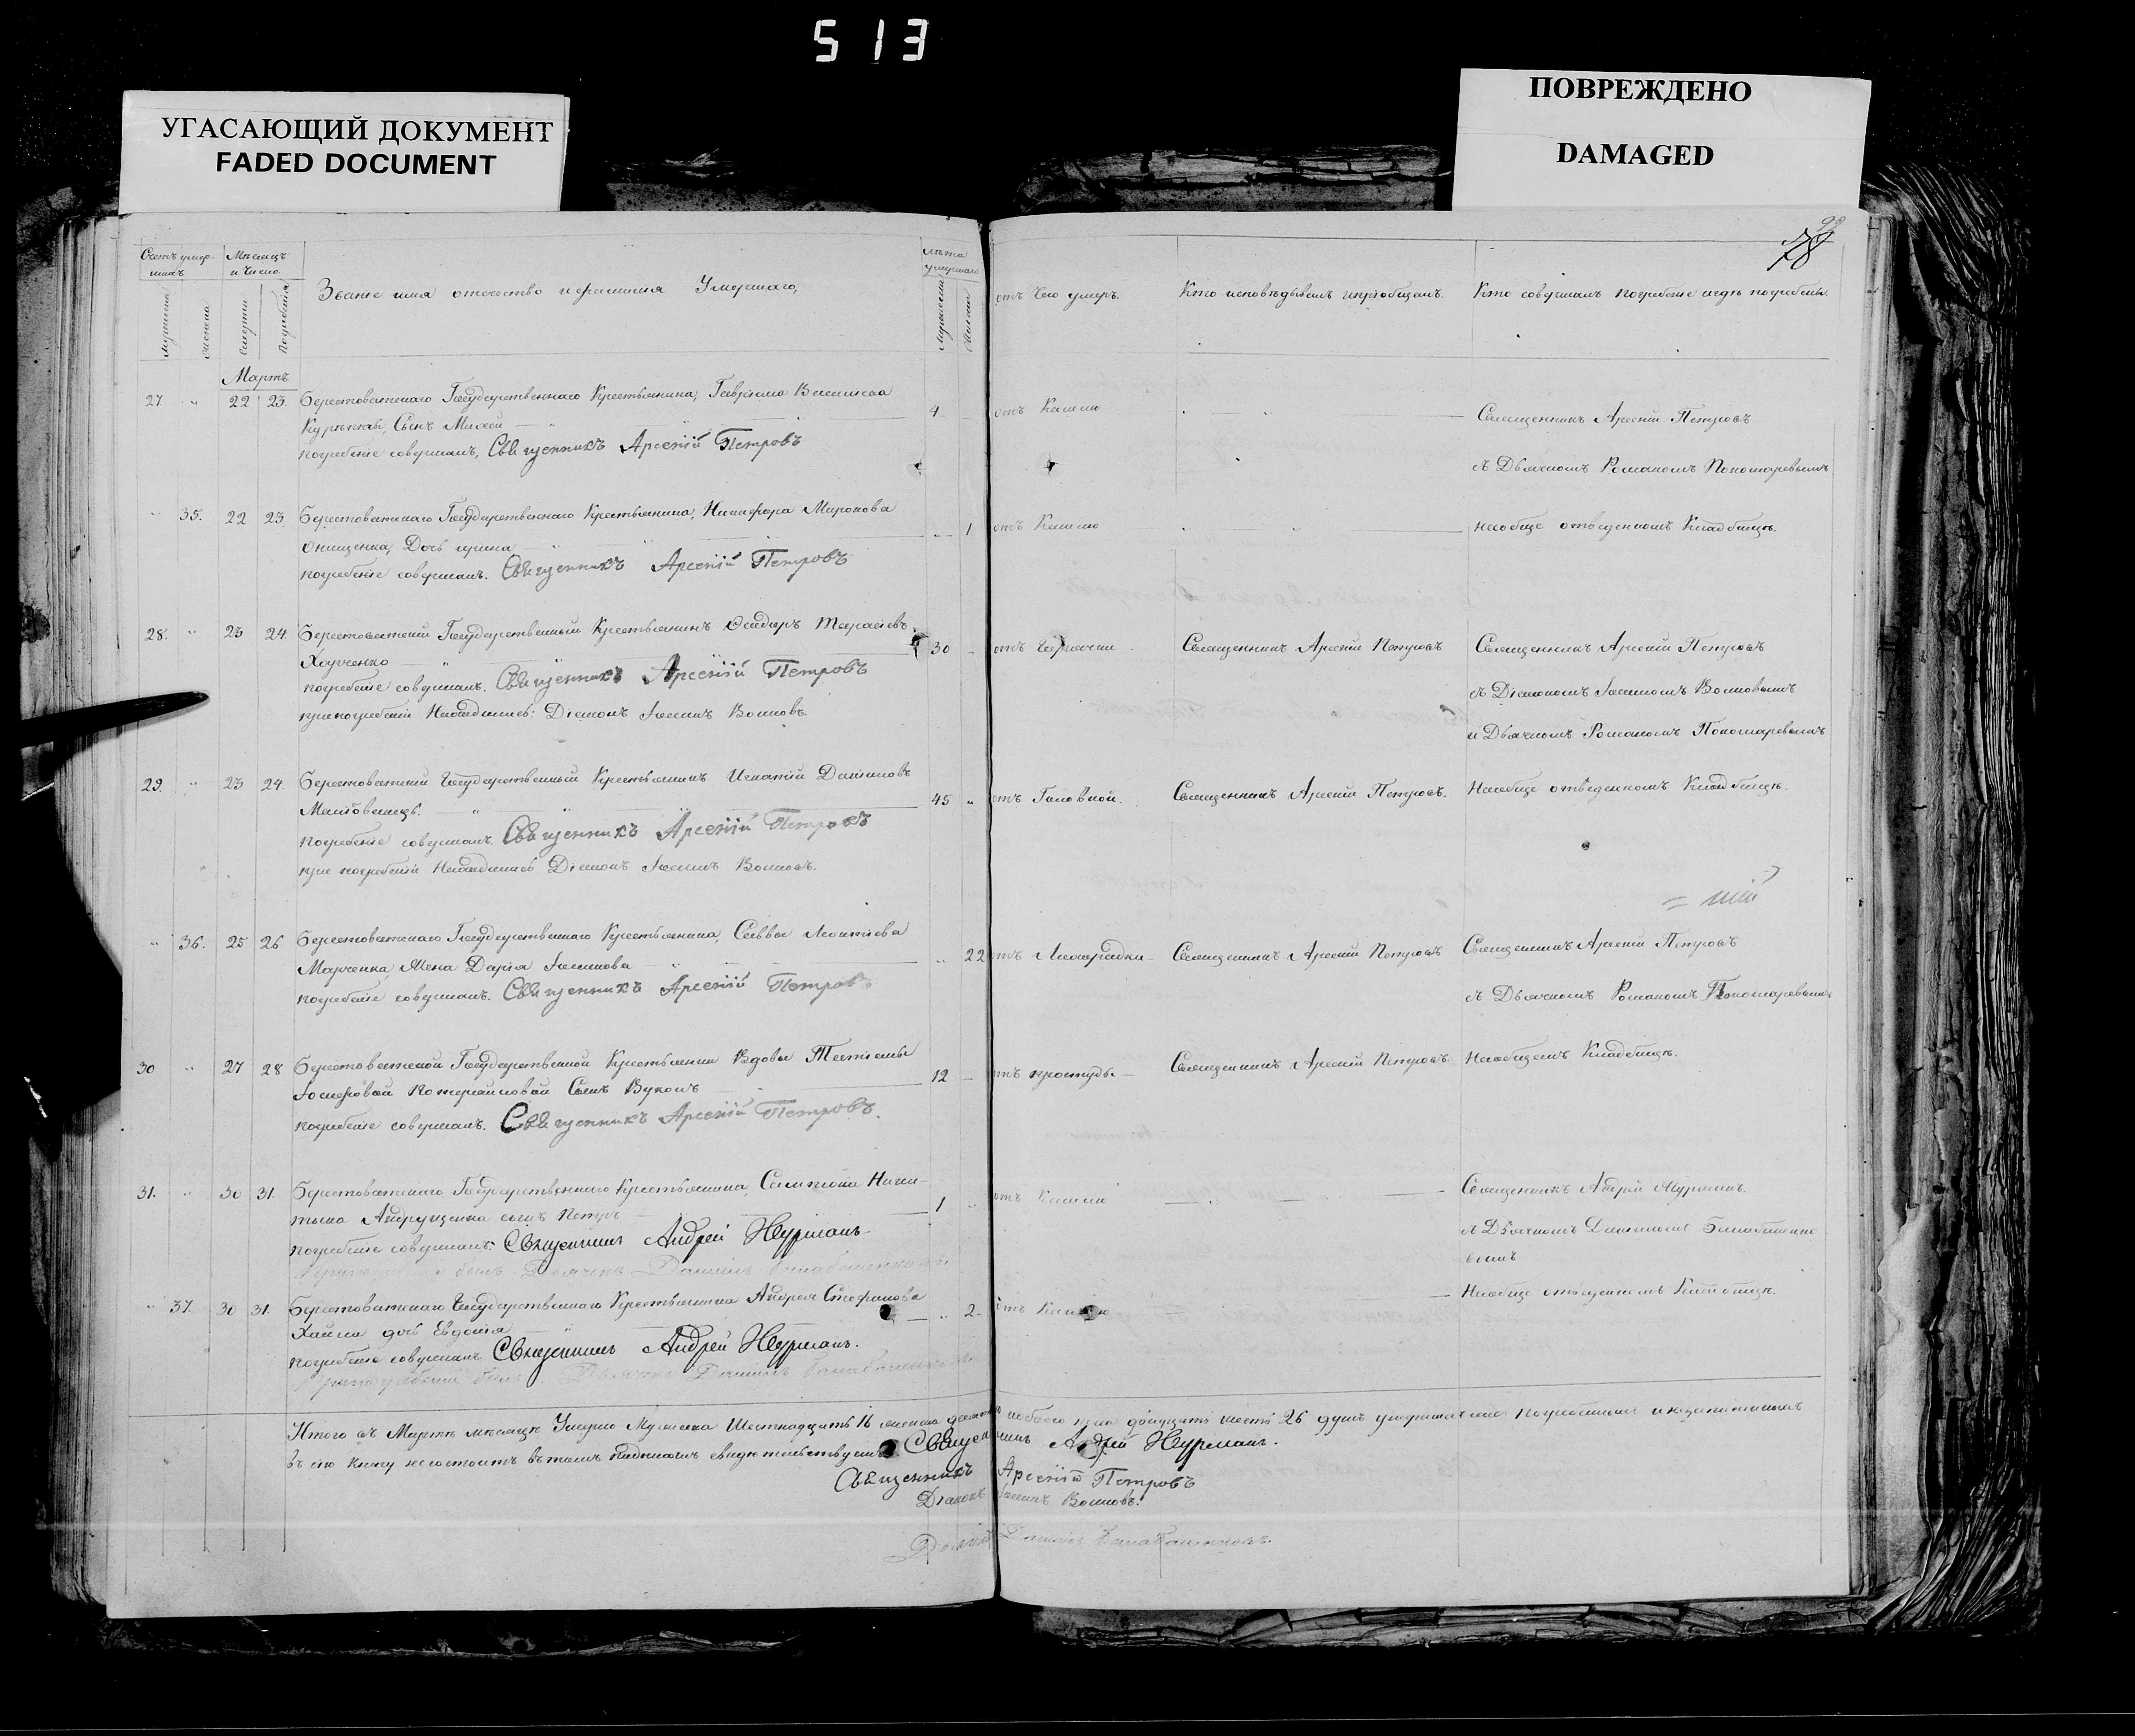 513
УГАСАЮЩИЙ ДОКУМЕНТ
FADED DOCUMENT
ПОВРЕЖДЕНО
DAMAGED
78
Счетъ умер-
шихъ
Мѣсяцъ
и число.
Званіе имя отечество и фамилія Умершаго,
лѣта
умершаго
мужеска
женска
смерти
погребенія
мужескаго
женска
отъ чего умеръ.
Кто исповѣдывалъ и пріобщалъ.
Кто совершалъ погребеніе и гдѣ погребены.
Мартъ
27 " 22 23. Берестоватскаго Государственнаго Крестьянина, Гавріила Василіева 4
отъ Кашлю
Священникъ Арсеній Петровъ
сынъ Михей
погребеніе совершалъ, Священникъ Арсеній Петровъ
съ Дьячкомъ Романомъ Пономаревымъ
" 35. 22 23 Берестоватскаго Государственнаго Крестьянина, Никифора Миронова
Онищенка, Дочь Ирина " 1
отъ Кашлю
на обще отведенномъ Кладбищѣ.
погребеніе совершалъ. Священникъ Арсеній Петровъ
28. " 23 24. Берестоватскій Государственный Крестьянинъ Тарасіевъ
Харченко 30
отъ Горячки
Священникъ Арсеній Петровъ
Священникъ Арсеній Петровъ
погребеніе совершалъ. Священникъ Арсеній Петровъ
съ Діакономъ Іоанномъ Воиновымъ
при погребеніи Находились: Діаконъ Іоаннъ Воиновъ.
и Дьячкомъ Романомъ Пономаревымъ
29. " 23 24. Берестоватскій Государственный Крестьянинъ Игнатій Даниловъ
45 "
отъ Головной.
Священникъ Арсеній Петровъ.
На обще отведенномъ Кладбищѣ.
погребеніе совершалъ. Священникъ Арсеній Петровъ
при погребеніи Находились Діаконъ Іоаннъ Воиновъ.
" 36. 25 26 Берестоватскаго Государственнаго Крестьянина, Саввы Леонтіева
Марченка, Жена Дарія " 22
отъ Лихорадки
Священникъ Арсеній Петровъ
Священникъ Арсеній Петровъ
погребеніе совершалъ. Священникъ Арсеній Петровъ
съ Дьячкомъ Романомъ Пономаревымъ
30 " 27 28 Берестоватской Государственной Крестьянки Вдовы Татіаны
Іосифовой Сынъ Вуколъ 12
отъ простуды
Священникъ Арсеній Петровъ.
На общемъ Кладбищѣ.
погребеніе совершалъ. Священникъ Арсеній Петровъ.
31. " 30 31. Берестоватскаго Государственнаго Крестьянина, Сампсона Ники-
тина Андрущенка сынъ Петръ 1 "
отъ Кашлю
Священникъ Андрей Нурманъ.
погребеніе совершалъ. Священникъ Андрей Нурманъ
съ Дьячкомъ Даніиломъ Балабаненко-
вымъ
при погребеніи былъ Дьячекъ Даніилъ Балабаненковъ.
" 37. 30 31. Берестоватскаго Государственнаго Крестьянина Андрея Стефанова
дочь Евдокія " 2
отъ Кашлю
На обще отведенномъ Кладбищѣ.
погребеніе совершалъ Священникъ Андрей Нурманъ.
при погребеніи былъ Дьячекъ Даніилъ Балабаненковъ
Итого въ Мартѣ мѣсяцѣ Умерло Мужеска Шестнадцать 16 женска десять но обоего пола двадцать шесть 26 душъ
въ сію книгу не состоитъ въ томъ подписомъ свидѣтельствуемъ Священникъ Андрей Нурманъ.
Священникъ Арсеній Петровъ
Діаконъ Іоаннъ Воиновъ.
Дьячекъ Даніилъ Балабаненковъ.